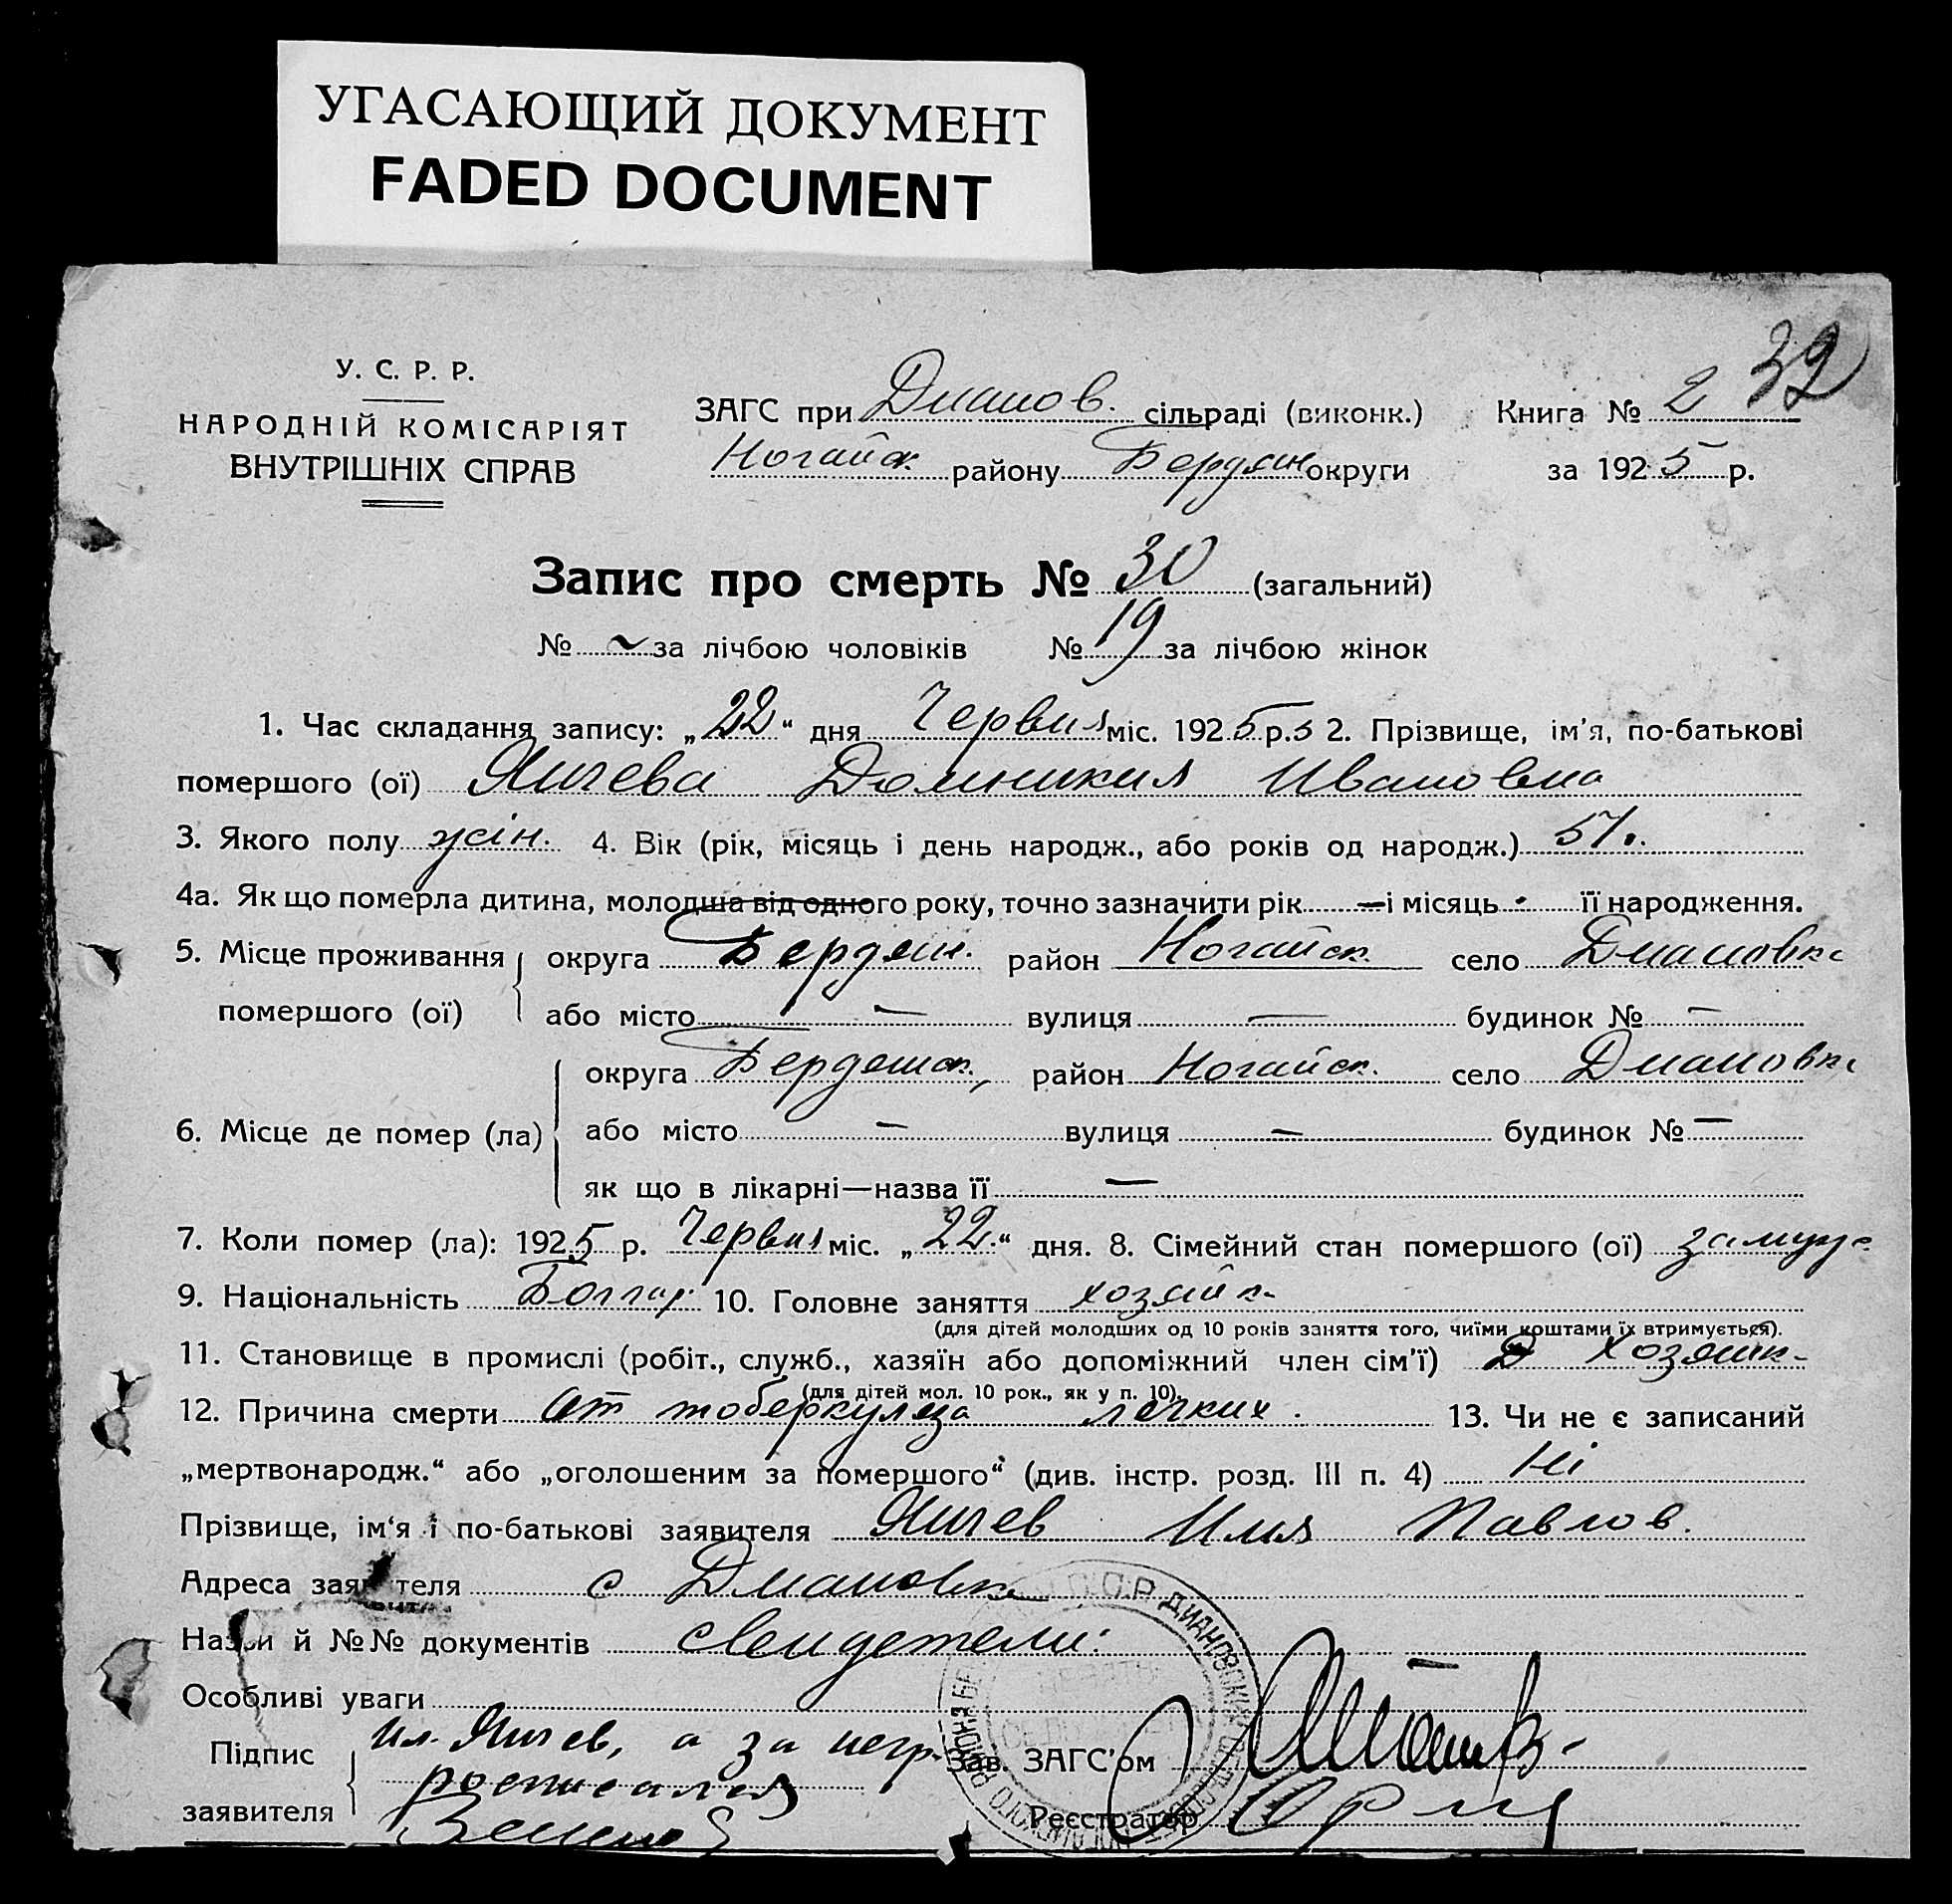 УГАСАЮЩИЙ ДОКУМЕНТ
FADED DOCUMENT
32
У. С. Р. Р.
НАРОДНІЙ КОМІСАРІЯТ
ВНУТРІШНІХ СПРАВ
ЗАГС при Дианов. сільраді (виконк.) Книга № 2
Ногайск району Бердян округи за 1925 р.
Запис про смерть № 30 (загальний)
№ ~ за лічбою чоловіків № 19 за лічбою жінок
1. Час складання запису: „22“ дня Червня міс. 1925 р. 2. Прізвище, ім'я, по-батькові
помершого (ої) Янчева Домникия Ивановна
3. Якого полу жін. 4. Вік (рік, місяць і день народж., або років од народж.) 57.
4а. Як що померла дитина, молодша від одного року, точно зазначити рік — і місяць - її народження.
5. Місце проживання округа Бердян. район Ногайск село Диановка
помершого (ої) або місто — вулиця — будинок № —
округа Бердянск, район Ногайск. село Диановка
6. Місце де помер (ла) або місто — вулиця — будинок № —
як що в лікарні—назва її —
7. Коли помер (ла): 1925 р. Червня міс. „22“ дня. 8. Сімейний стан помершого (ої) замуж
9. Національність Болгар. 10. Головне заняття хозяйк
(для дітей молодших од 10 років заняття того, чиїми коштами їх втримується).
11. Становище в промислі (робіт., служб., хазяїн або допоміжний член сім'ї) Хозяйк
(для дітей мол. 10 рок., як у п. 10).
12. Причина смерти от тоберкулеза легких. 13. Чи не є записаний
„мертвонародж.“ або „оголошеним за помершого“ (див. інстр. розд. III п. 4) Ні
Прізвище, ім'я і по-батькові заявителя Янчев Илия Павлов.
Адреса заявителя с Диановк
Назви й №№ документів свидетели:
Особливі уваги
Підпис Ил. Янчев, а за негр.
заявителя росписался
Зав. ЗАГС'ом
Реєстратор
С.С.Р. ДИАНОВСКИЙ СЕЛЬСОВЕТ НОГАЙСКОГО РАЙОНА БЕ